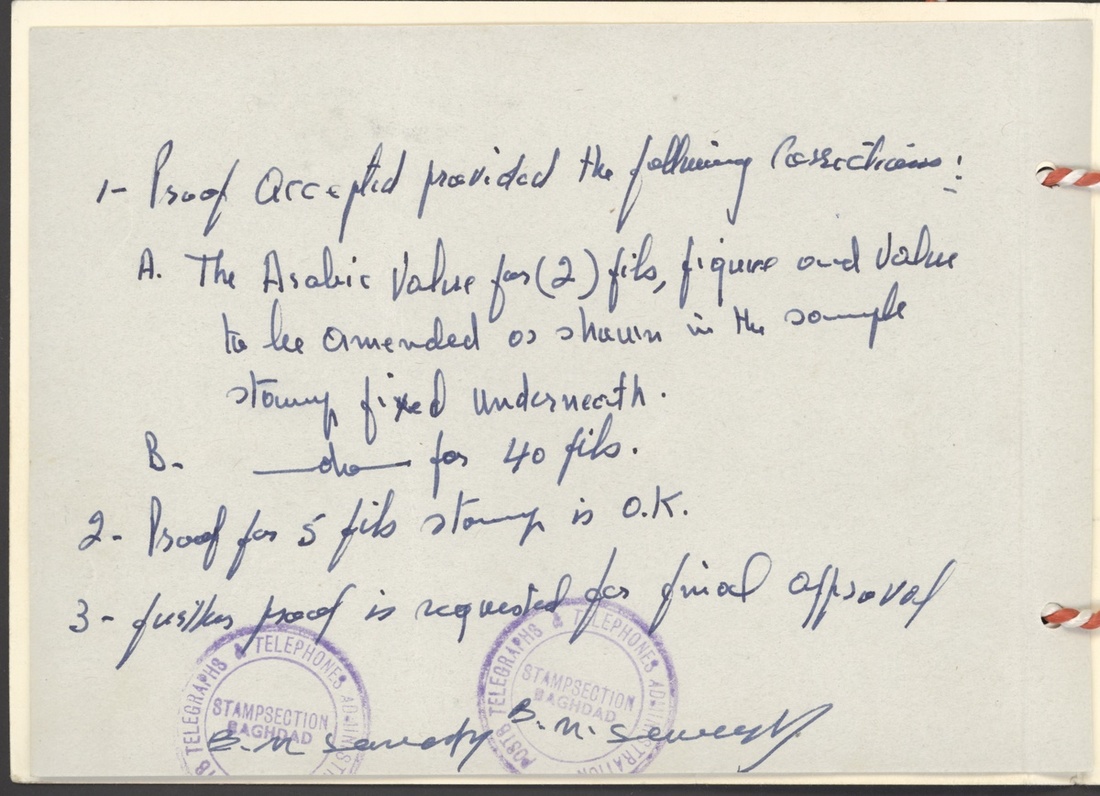 1- Proof Accepted provided the following Corrections:
A. The Arabic Value for (2) fils, figure and Value
to be amended as shown in the sample
stamp fixed underneath.
B. —do— for 40 fils.
2- Proof for 5 fils stamp is O.K.
3- further proof is requested for final approval
POSTS TELEGRAPHS & TELEPHONES ADMINISTRATION
STAMPSECTION
BAGHDAD
B. N.
TELEGRAPHS & TELEPHONES ADMINIST
STAMPSECTION
BAGHDAD
B. N.